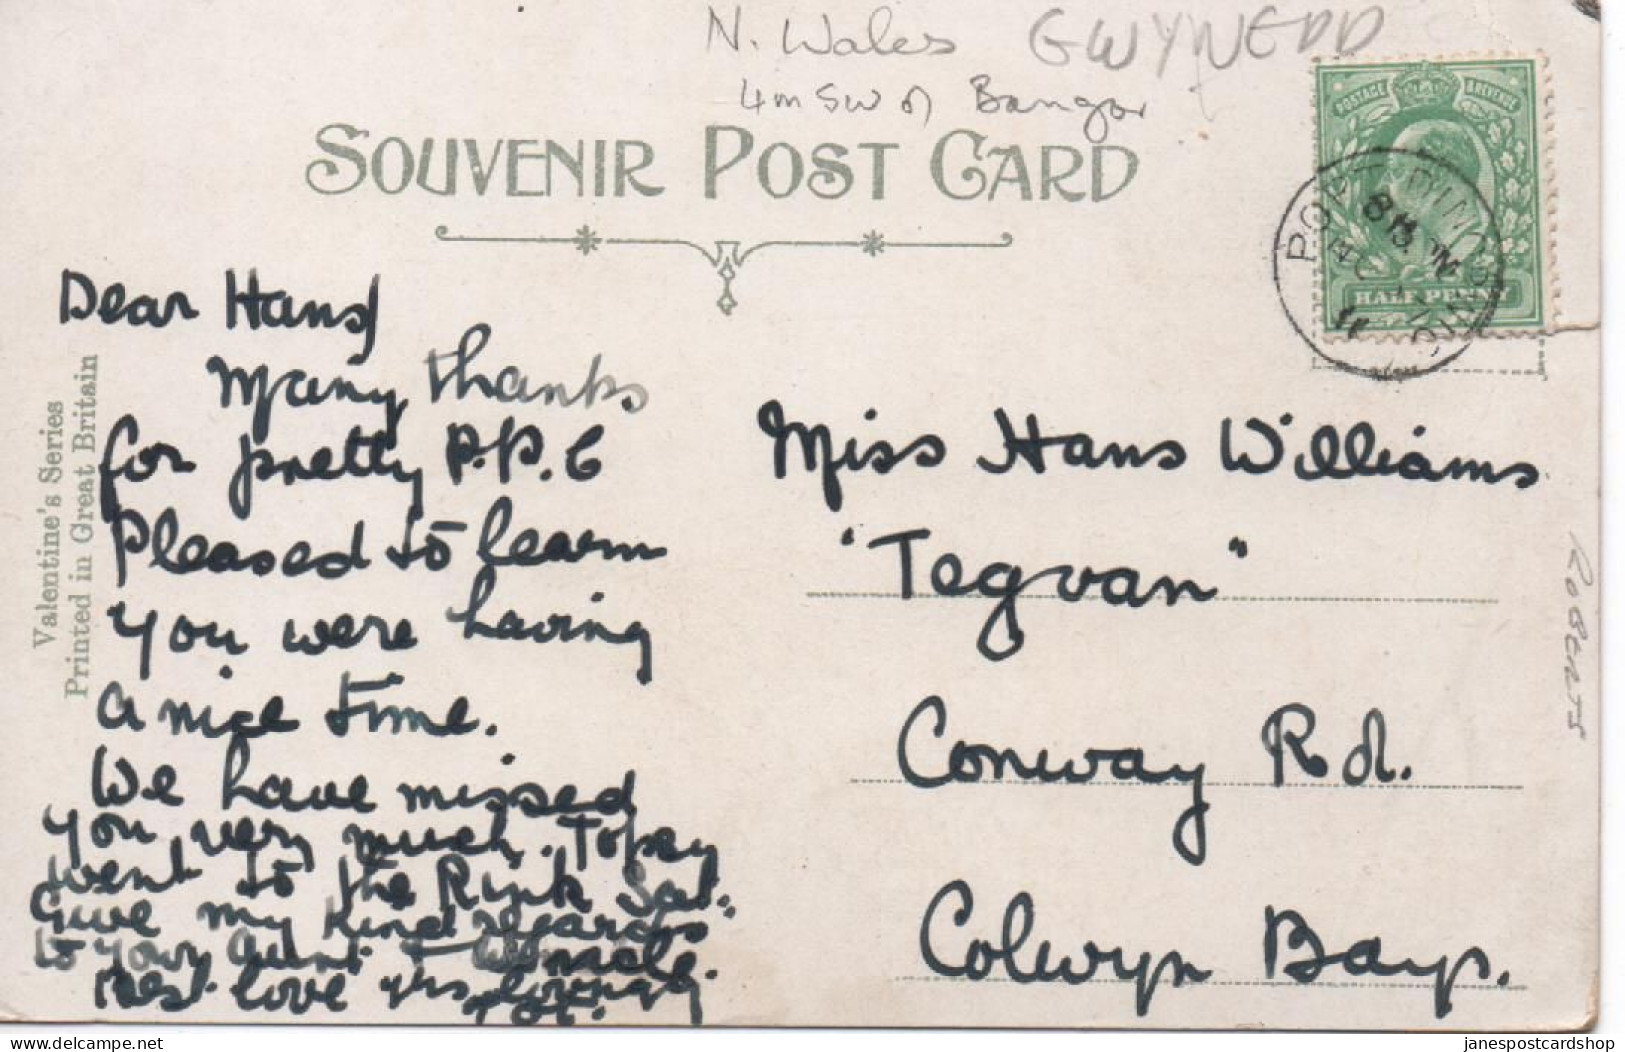 N. Wales GWYNEDD
4m SW of Bangor
SOUVENIR POST CARD
POSTAGE & REVENUE
HALF PENNY
PORT DINORWIC
Valentine's Series
Printed in Great Britain
Dear Hans
Many thanks
for pretty P.P.C
Pleased to learn
you were having
a nice time.
We have missed
you very much. Topsy
went to the Rink Sat.
Give my kind regards
to your Aunt & Uncle.
Best love yrs lovingly
Miss Hans Williams
"Tegvan"
Conway Rd.
Colwyn Bay.
ROBERTS
Made with love by
janespostcardshop